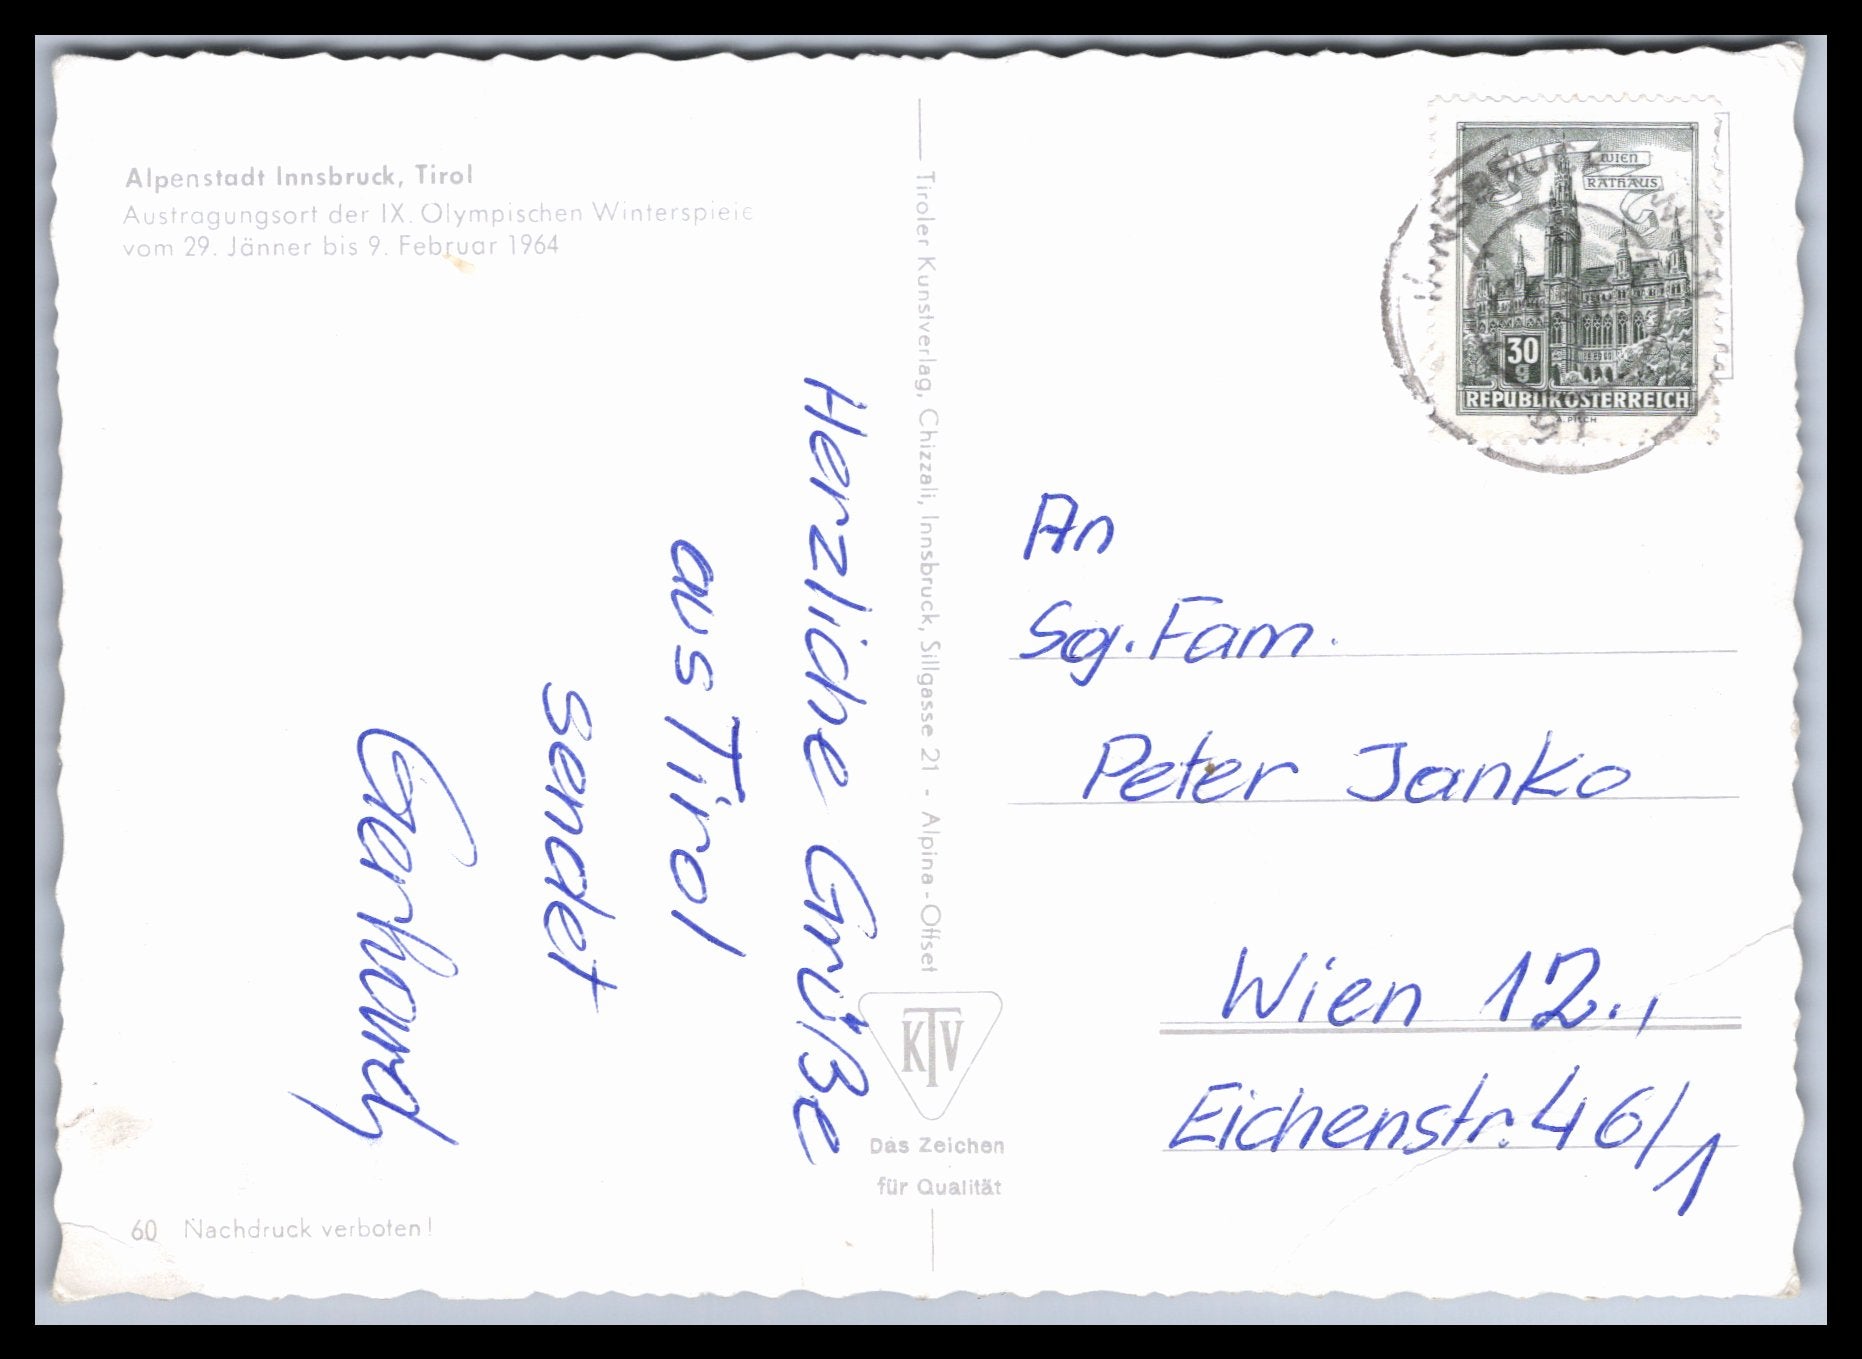 Alpenstadt Innsbruck, Tirol
Austragungsort der IX. Olympischen Winterspiele
vom 29. Jänner bis 9. Februar 1964
Herzliche Grüße
aus Tirol
sendet
Gerhard
60 Nachdruck verboten!
Tiroler Kunstverlag, Chizzali, Innsbruck, Sillgasse 21 - Alpina-Offset
KTV
Das Zeichen
für Qualität
WIEN
RATHAUS
30
g
REPUBLIK ÖSTERREICH
A. PILCH
INNSBRUCK
An
Sg. Fam.
Peter Janko
Wien 12.,
Eichenstr. 46/1